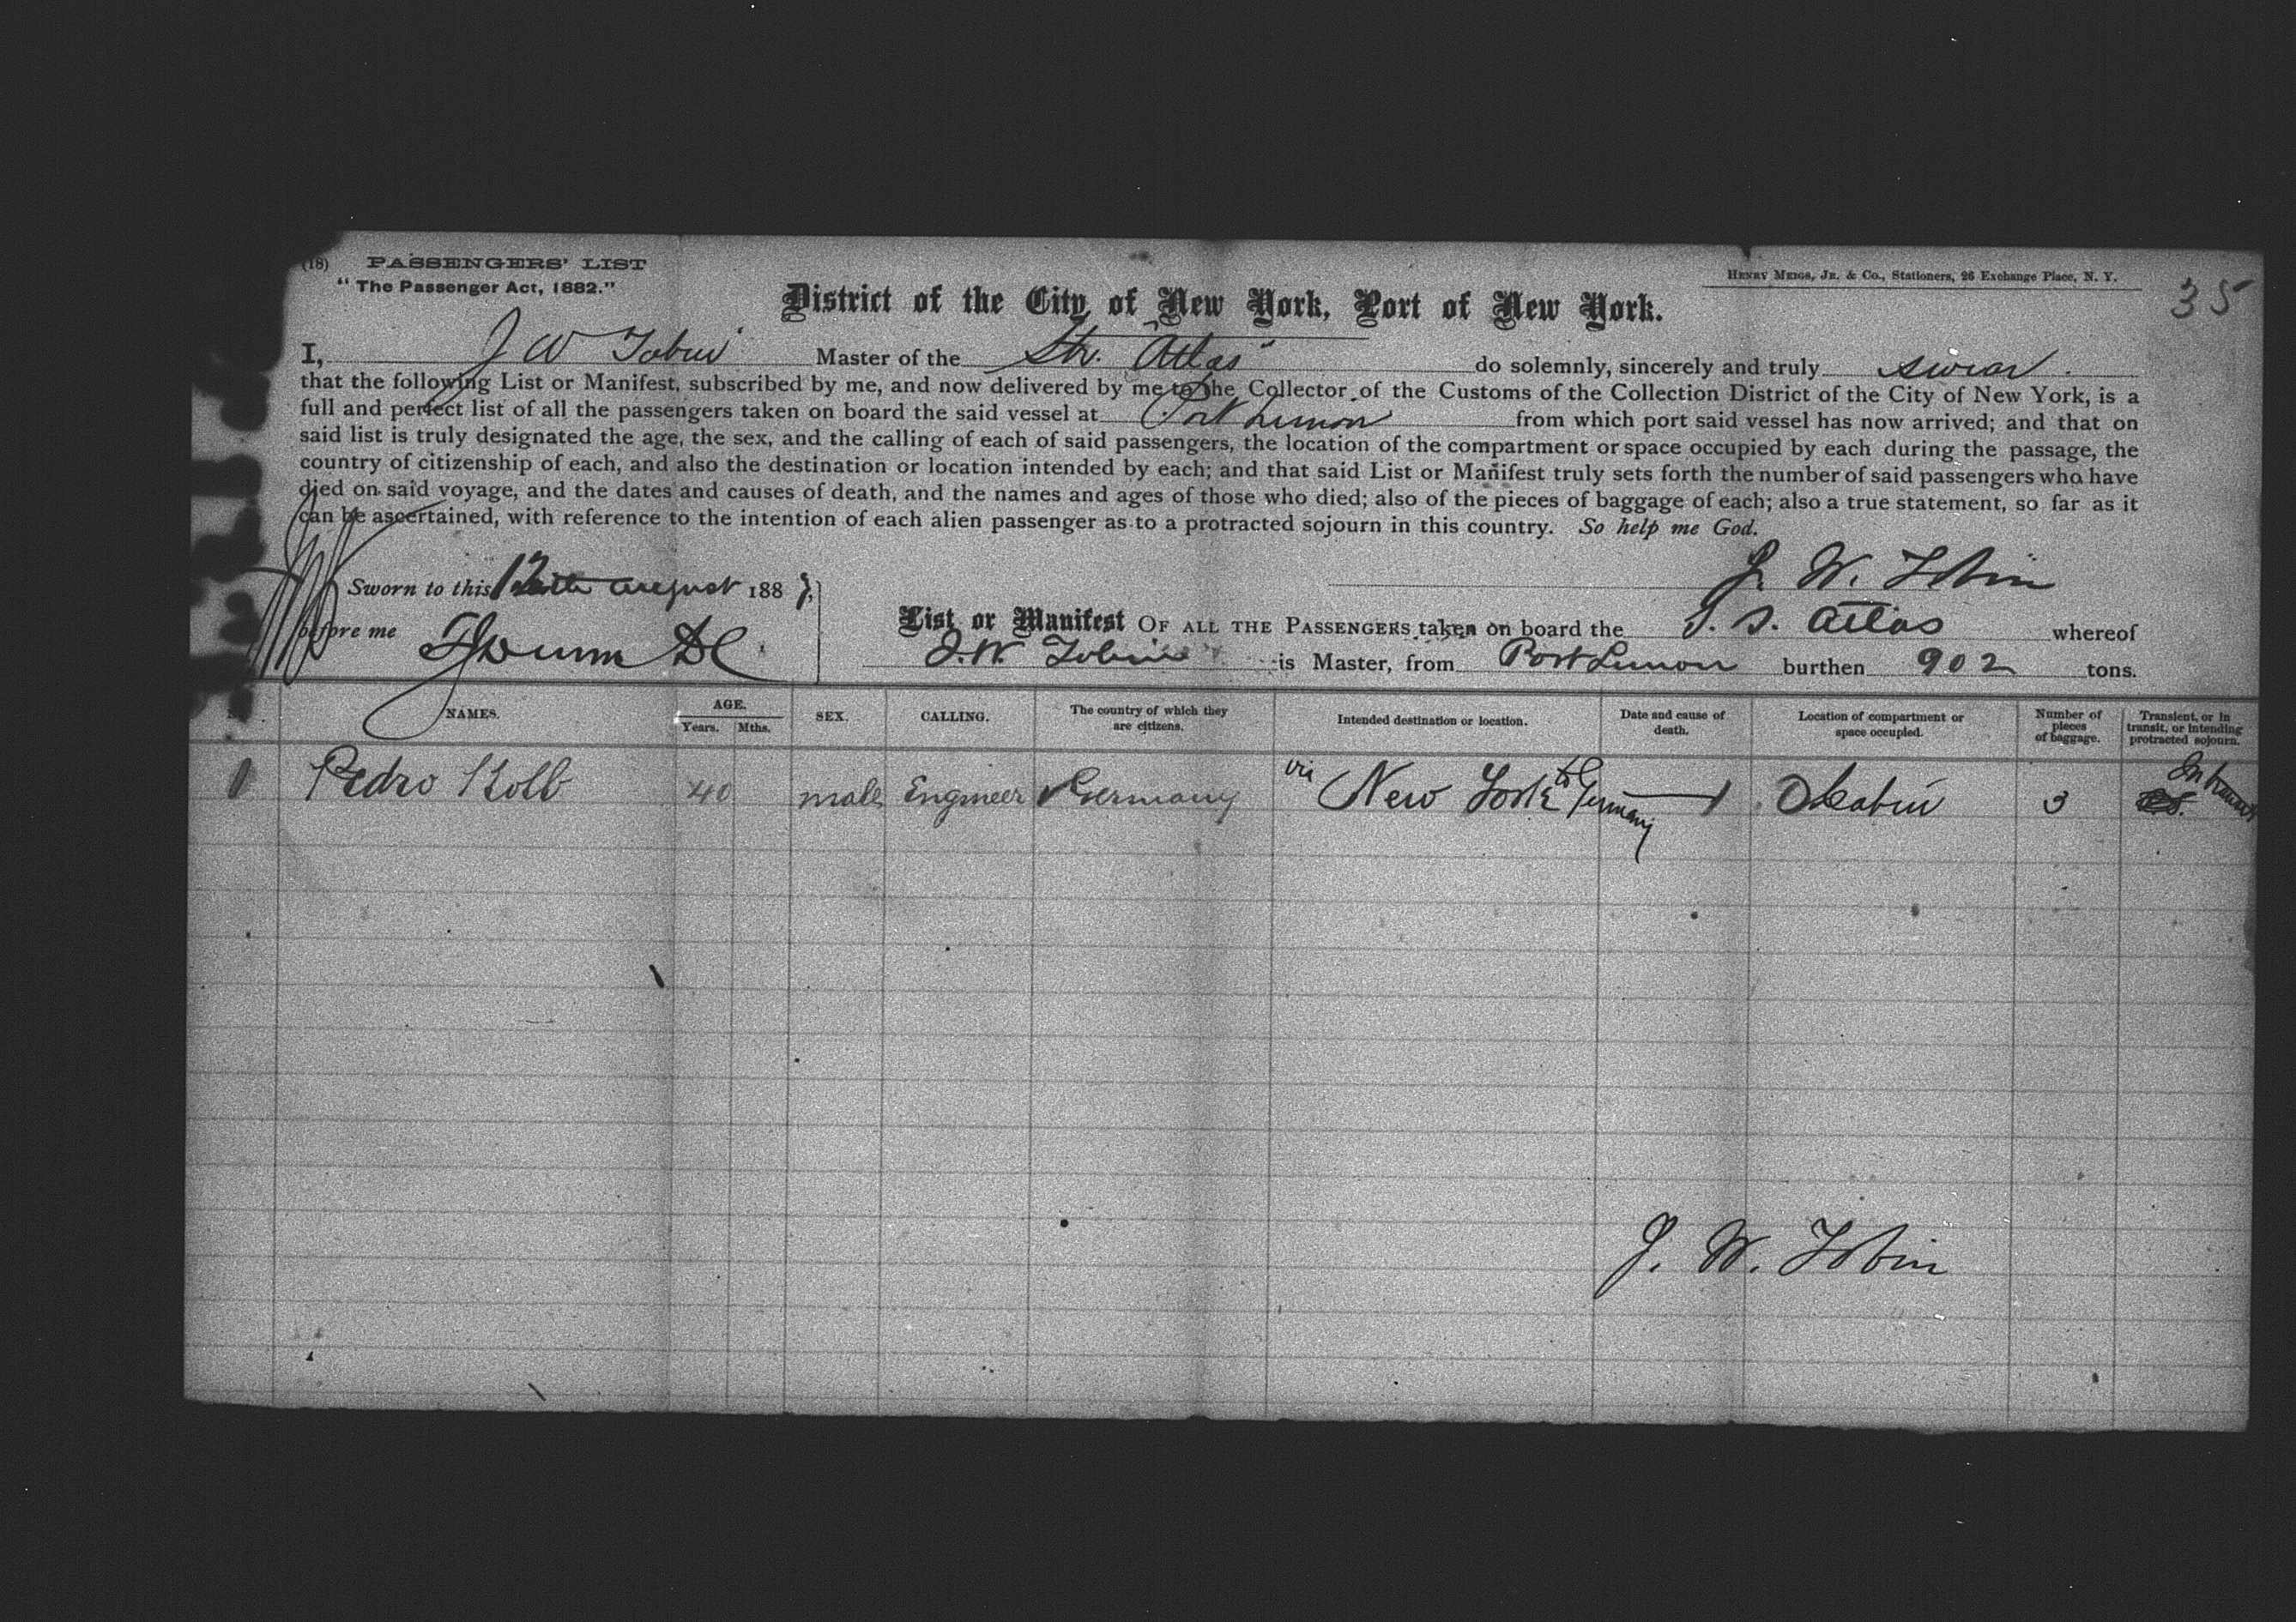 (18) PASSENGERS' LIST
"The Passenger Act, 1882."
HENRY MEIGS, JR. & Co., Stationers, 26 Exchange Place, N. Y.
35
District of the City of New York, Port of New York.
I, J W Tobin Master of the Str. "Atlas" do solemnly, sincerely and truly swear
that the following List or Manifest, subscribed by me, and now delivered by me to the Collector of the Customs of the Collection District of the City of New York, is a
full and perfect list of all the passengers taken on board the said vessel at Port Limon from which port said vessel has now arrived; and that on
said list is truly designated the age, the sex, and the calling of each of said passengers, the location of the compartment or space occupied by each during the passage, the
country of citizenship of each, and also the destination or location intended by each; and that said List or Manifest truly sets forth the number of said passengers who have
died on said voyage, and the dates and causes of death, and the names and ages of those who died; also of the pieces of baggage of each; also a true statement, so far as it
can be ascertained, with reference to the intention of each alien passenger as to a protracted sojourn in this country. So help me God.
J. W. Tobin
Sworn to this 12 august 188
before me
List or Manifest OF ALL THE PASSENGERS taken on board the S. S. Atlas whereof
J. W. Tobin is Master, from Port Limon burthen 902 tons.
NAMES. AGE. Years. Mths. SEX. CALLING. The country of which they are citizens. Intended destination or location. Date and cause of death. Location of compartment or space occupied. Number of pieces of baggage. Transient, or in transit, or intending protracted sojourn.
1 Pedro Kolb 40 male Engineer Germany via New York to Germany Cabin 3 In transit
J. W. Tobin